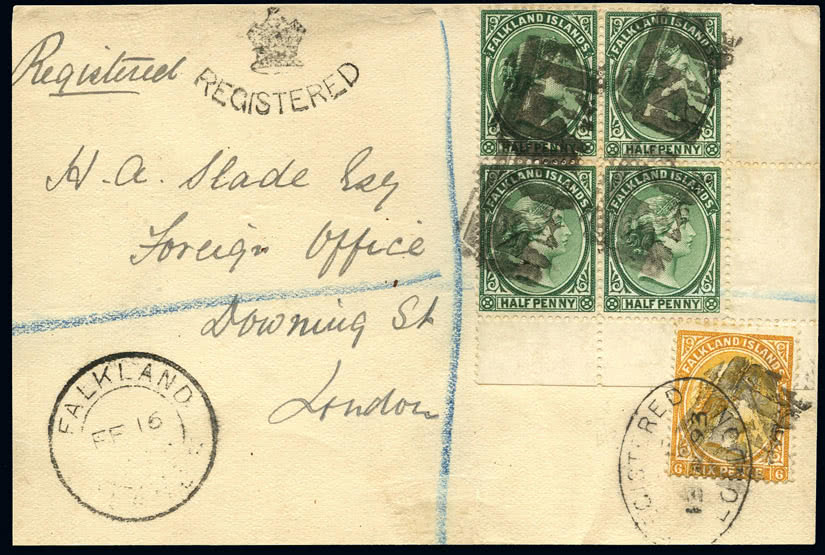 Registered
REGISTERED
H. A. Slade Esq
Foreign Office
Downing St
London
FALKLAND
FE 16
FALKLAND ISLANDS
HALFPENNY
FALKLAND ISLANDS
HALFPENNY
FALKLAND ISLANDS
HALFPENNY
FALKLAND ISLANDS
HALFPENNY
FALKLAND ISLANDS
6 SIX PENCE 6
REGISTERED
93